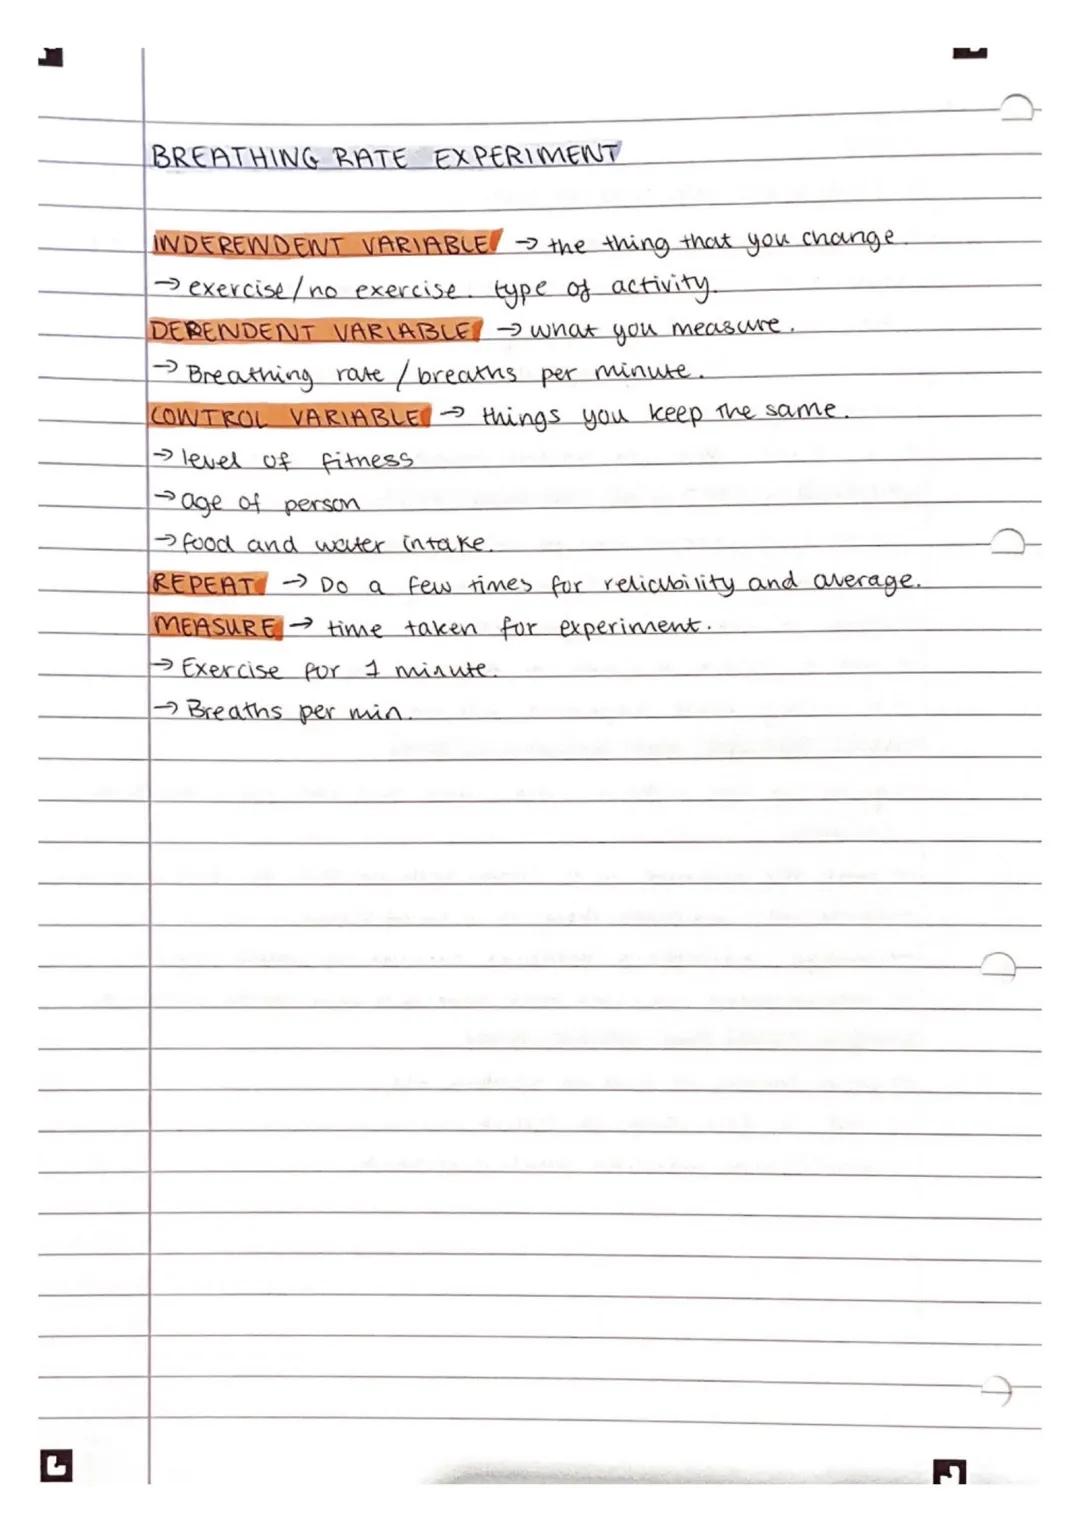 BREATHING RATE EXPERIMENT
INDEPENDENT VARIABLE → the thing that you change.
→ exercise/no exercise. type of activity.
DEPENDENT VARIABLE → what you measure.
→ Breathing rate / breaths per minute.
CONTROL VARIABLE → things you keep the same.
→ level of fitness
→ age of person
→ food and water intake.
REPEAT → Do a few times for reliability and average.
MEASURE → time taken for experiment.
→ Exercise for 1 minute.
→ Breaths per min.